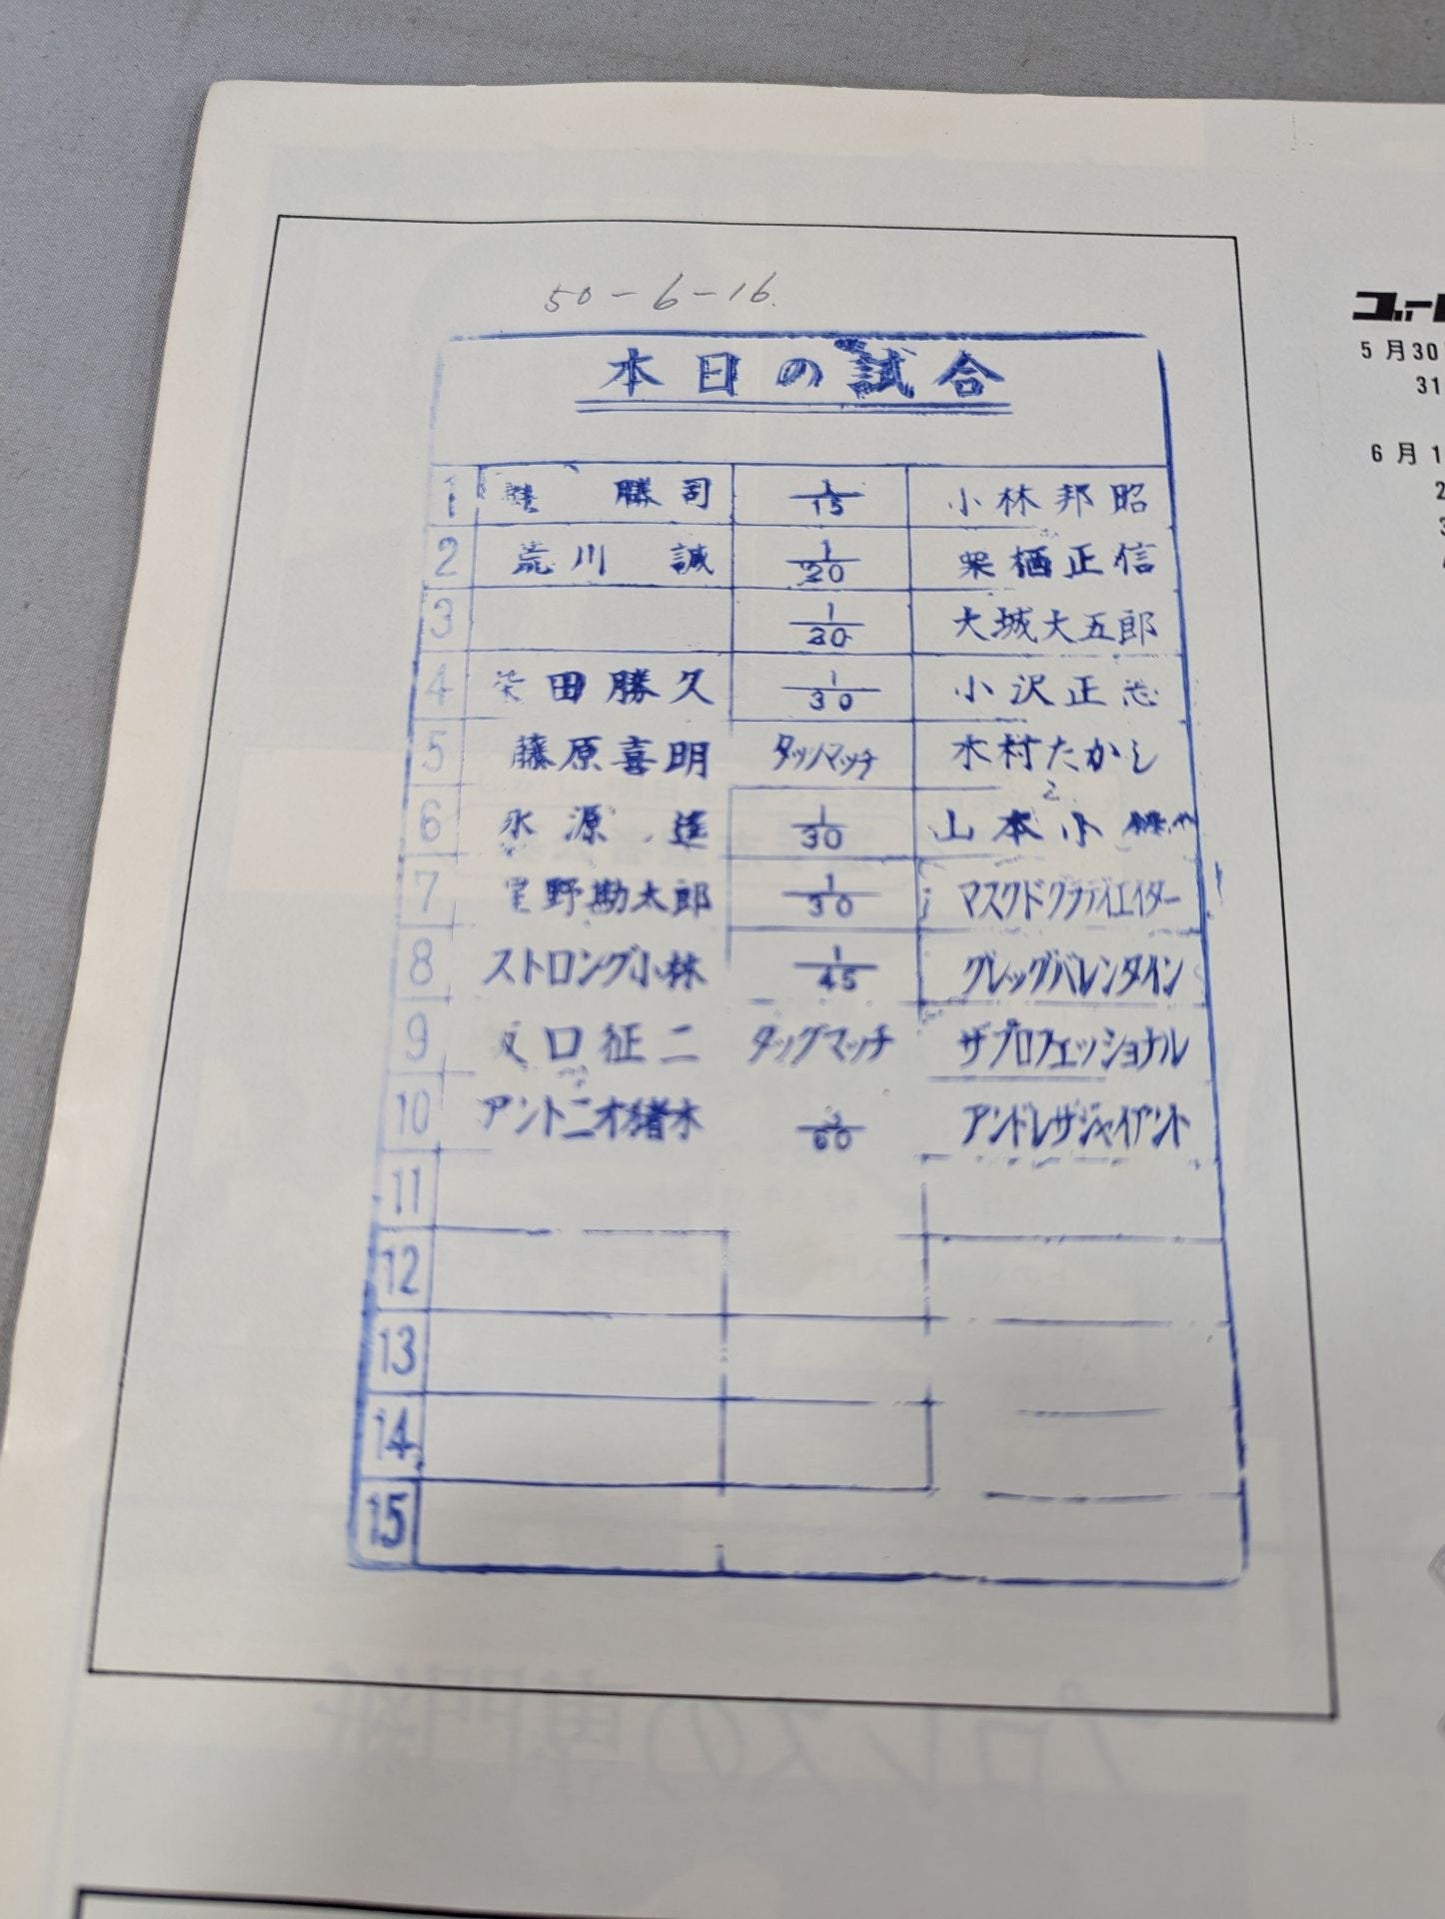 50-6-16.
本日の試合
1 勝司 1/15 小林邦昭
2 荒川 誠 1/20 栗栖正信
3 1/20 大城大五郎
4 柴田勝久 1/30 小沢正志
5 藤原喜明 タッグマッチ 木村たかし
6 永源 遥 1/30 山本小
7 星野勘太郎 1/30 マスクドグラディエイター
8 ストロング小林 1/45 グレッグバレンタイン
9 坂口征二 タッグマッチ ザプロフェッショナル
10 アントニオ猪木 3/60 アンドレザジャイアント
11
12
13
14
15
5月30
31
6月1
2
3